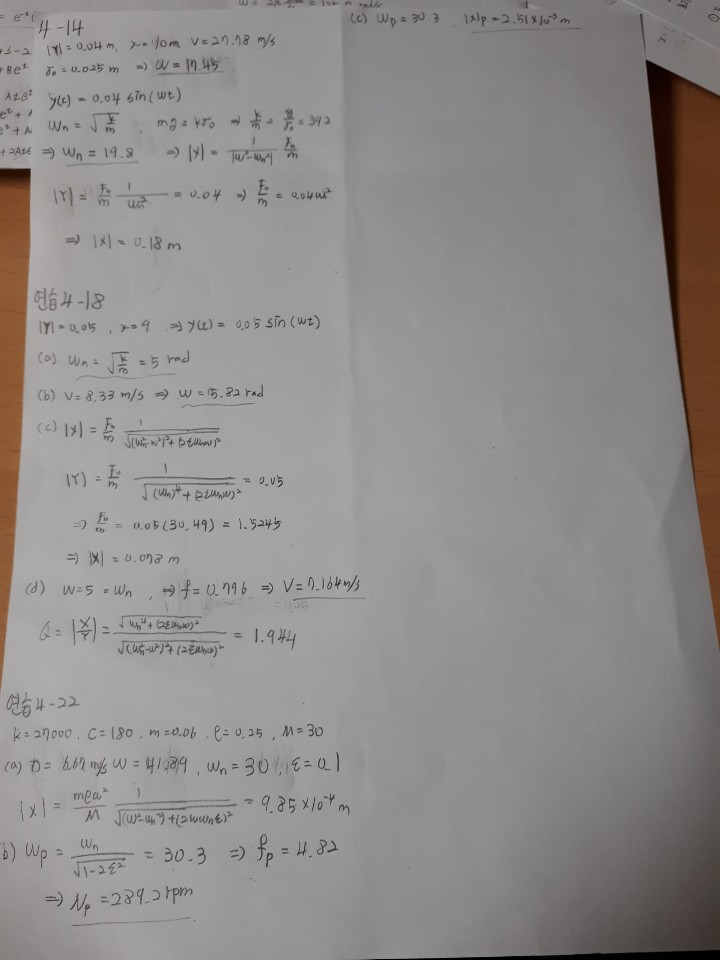 4-14
|Y| = 0.04 m, λ = 10 m V = 27.78 m/s
δ₀ = 0.025 m ⇒ ω = 17.45
y(t) = 0.04 sin(ωt)
ωn = √(k/m) , mg = kδ₀ ⇒ k/m = g/δ₀ = 392
⇒ ωn = 19.8 ⇒ |X| = 1/|ω²-ωn²| F₀/m
|Y| = F₀/m 1/ωn² = 0.04 ⇒ F₀/m = 0.04ω²
⇒ |X| = 0.18 m
연습 4-18
|Y| = 0.05 , λ = 9 ⇒ y(t) = 0.05 sin(ωt)
(a) ωn = √(k/m) = 5 rad
(b) V = 8.33 m/s ⇒ ω = 5.82 rad
(c) |X| = F₀/m 1/√((ωn²-ω²)²+(2ξωnω)²)
|Y| = F₀/m 1/√((ωn)⁴+(2ξωnω)²) = 0.05
⇒ F₀/m = 0.05(30.49) = 1.5245
⇒ |X| = 0.078 m
(d) ω = 5 = ωn , ⇒ f = 0.796 ⇒ V = 7.164 m/s
Q = |X/Y| = √(ωn⁴+(2ξωnω)²)/√((ωn²-ω²)²+(2ξωnω)²) = 1.944
연습 4-22
k = 27000 . C = 180 . m = 0.06 . e = 0.25 , M = 30
(a) v = 6.67 m/s ω = 41.89 , ωn = 30 , ξ = 0.1
|X| = meω²/M 1/√((ω²-ωn²)+(2ωωnξ)²) = 9.85×10⁻⁴ m
b) ωp = ωn/√(1-2ξ²) = 30.3 ⇒ fp = 4.82
⇒ Np = 289.2 rpm
(c) ωp = 30.3 . |X|p = 2.51×10⁻³ m